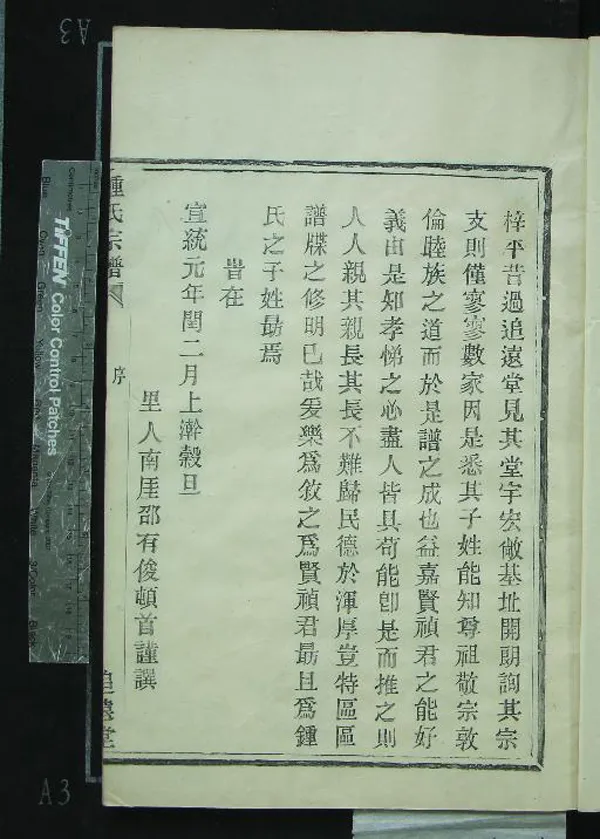 梓平昔過追遠堂見其堂宇宏敞基址開朗詢其宗
支則僅寥寥數家因是悉其子姓能知尊祖敬宗敦
倫睦族之道而於是譜之成也益嘉賢禎君之能好
義由是知孝悌之必盡人皆具苟能卽是而推之則
人人親其親長其長不難歸民德於渾厚豈特區區
譜牒之修明已哉爰樂爲敘之爲賢禎君勗且爲鍾
氏之子姓勗焉
旹在
宣統元年閏二月上澣穀旦
里人南厓邵有俊頓首謹譔
鍾氏宗譜
序
追遠堂
TIFFEN Color Control Patches
A3
A3